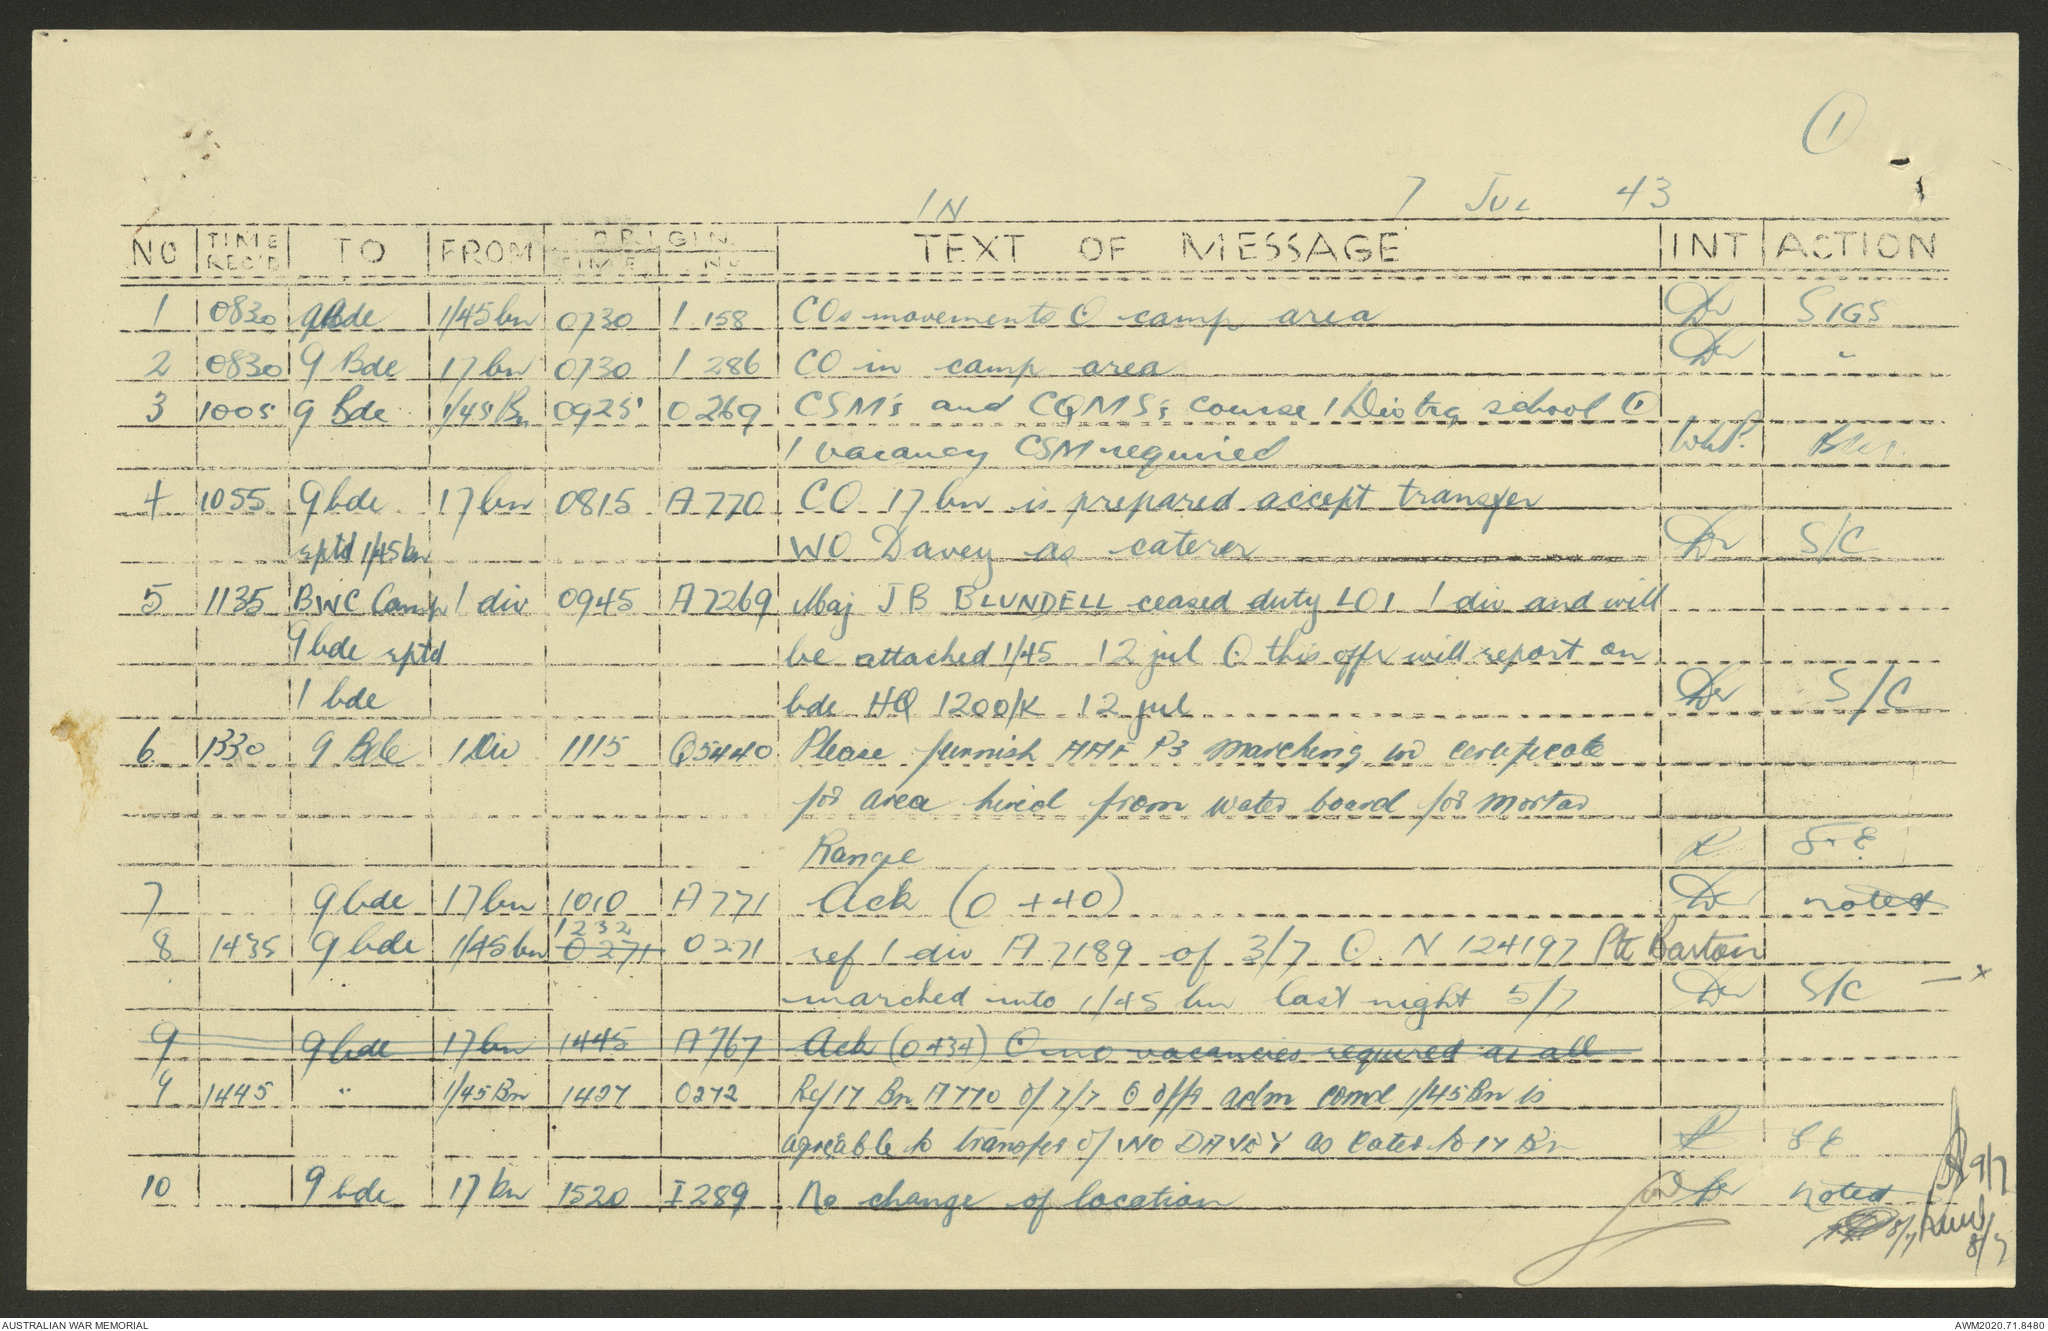 1
IN 7 JUL 43
NO TIME REC'D TO FROM ORIGIN TIME NO TEXT OF MESSAGE INT ACTION
1 0830 9 Bde 1/45 bn 0730 I 158 COs movements ⊙ camp area Dw SIGS
2 0830 9 Bde 17 bn 0730 I 286 CO in camp area Dw "
3 1005 9 Bde 1/45 Bn 0925 O 269 CSM's and CQMS's course 1 Div trg school ⊙
1 vacancy CSM required
4 1055 9 bde 17 bn 0815 A 770 CO 17 bn is prepared accept transfer
rptd 1/45 bn WO Davey as caterer Dw S/C
5 1135 BWC Camp 1 div 0945 A 7269 Maj JB BLUNDELL ceased duty LO1 1 div and will
9 bde rptd be attached 1/45 12 jul ⊙ this offr will report on
1 bde bde HQ 1200/K 12 jul Dw S/C
6 1330 9 Bde 1 Div 1115 Q5440 Please furnish AAF P3 marching in certificate
for area hired from water board for mortar
Range
7 9 bde 17 bn 1010 A 771 Ack (O 440) Dw noted
1232
8 1435 9 bde 1/45 bn 0271 O 271 ref 1 div A 7189 of 3/7 ⊙ N 124197 Pte Barton
marched into 1/45 bn last night 5/7 Dw S/C — x
9 9 bde 17 bn 1445 A 767 Ack (O 434) ⊙ no vacancies required at all
9 1445 " 1/45 Bn 1427 O272 Ref 17 Bn A770 of 7/7 ⊙ offr adm comd 1/45 Bn is
agreeable to transfer of WO DAVEY as Cater to 17 Bn
10 9 bde 17 bn 1520 I 289 No change of location Dw noted
9/7
8/7
8/7
AUSTRALIAN WAR MEMORIAL AWM2020.71.8480